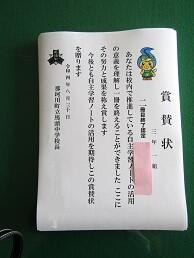 賞賛状
二冊目終了認定
三年一組
あなたは校内で推進している自主学習ノートの活用
の意義を理解し一冊を終えることができました ここに
その努力と成果を称え賞します
今後とも自主学習ノートの活用を期待しこの賞賛状
を贈ります
令和四年八月三十日
那珂川町立馬頭中学校長